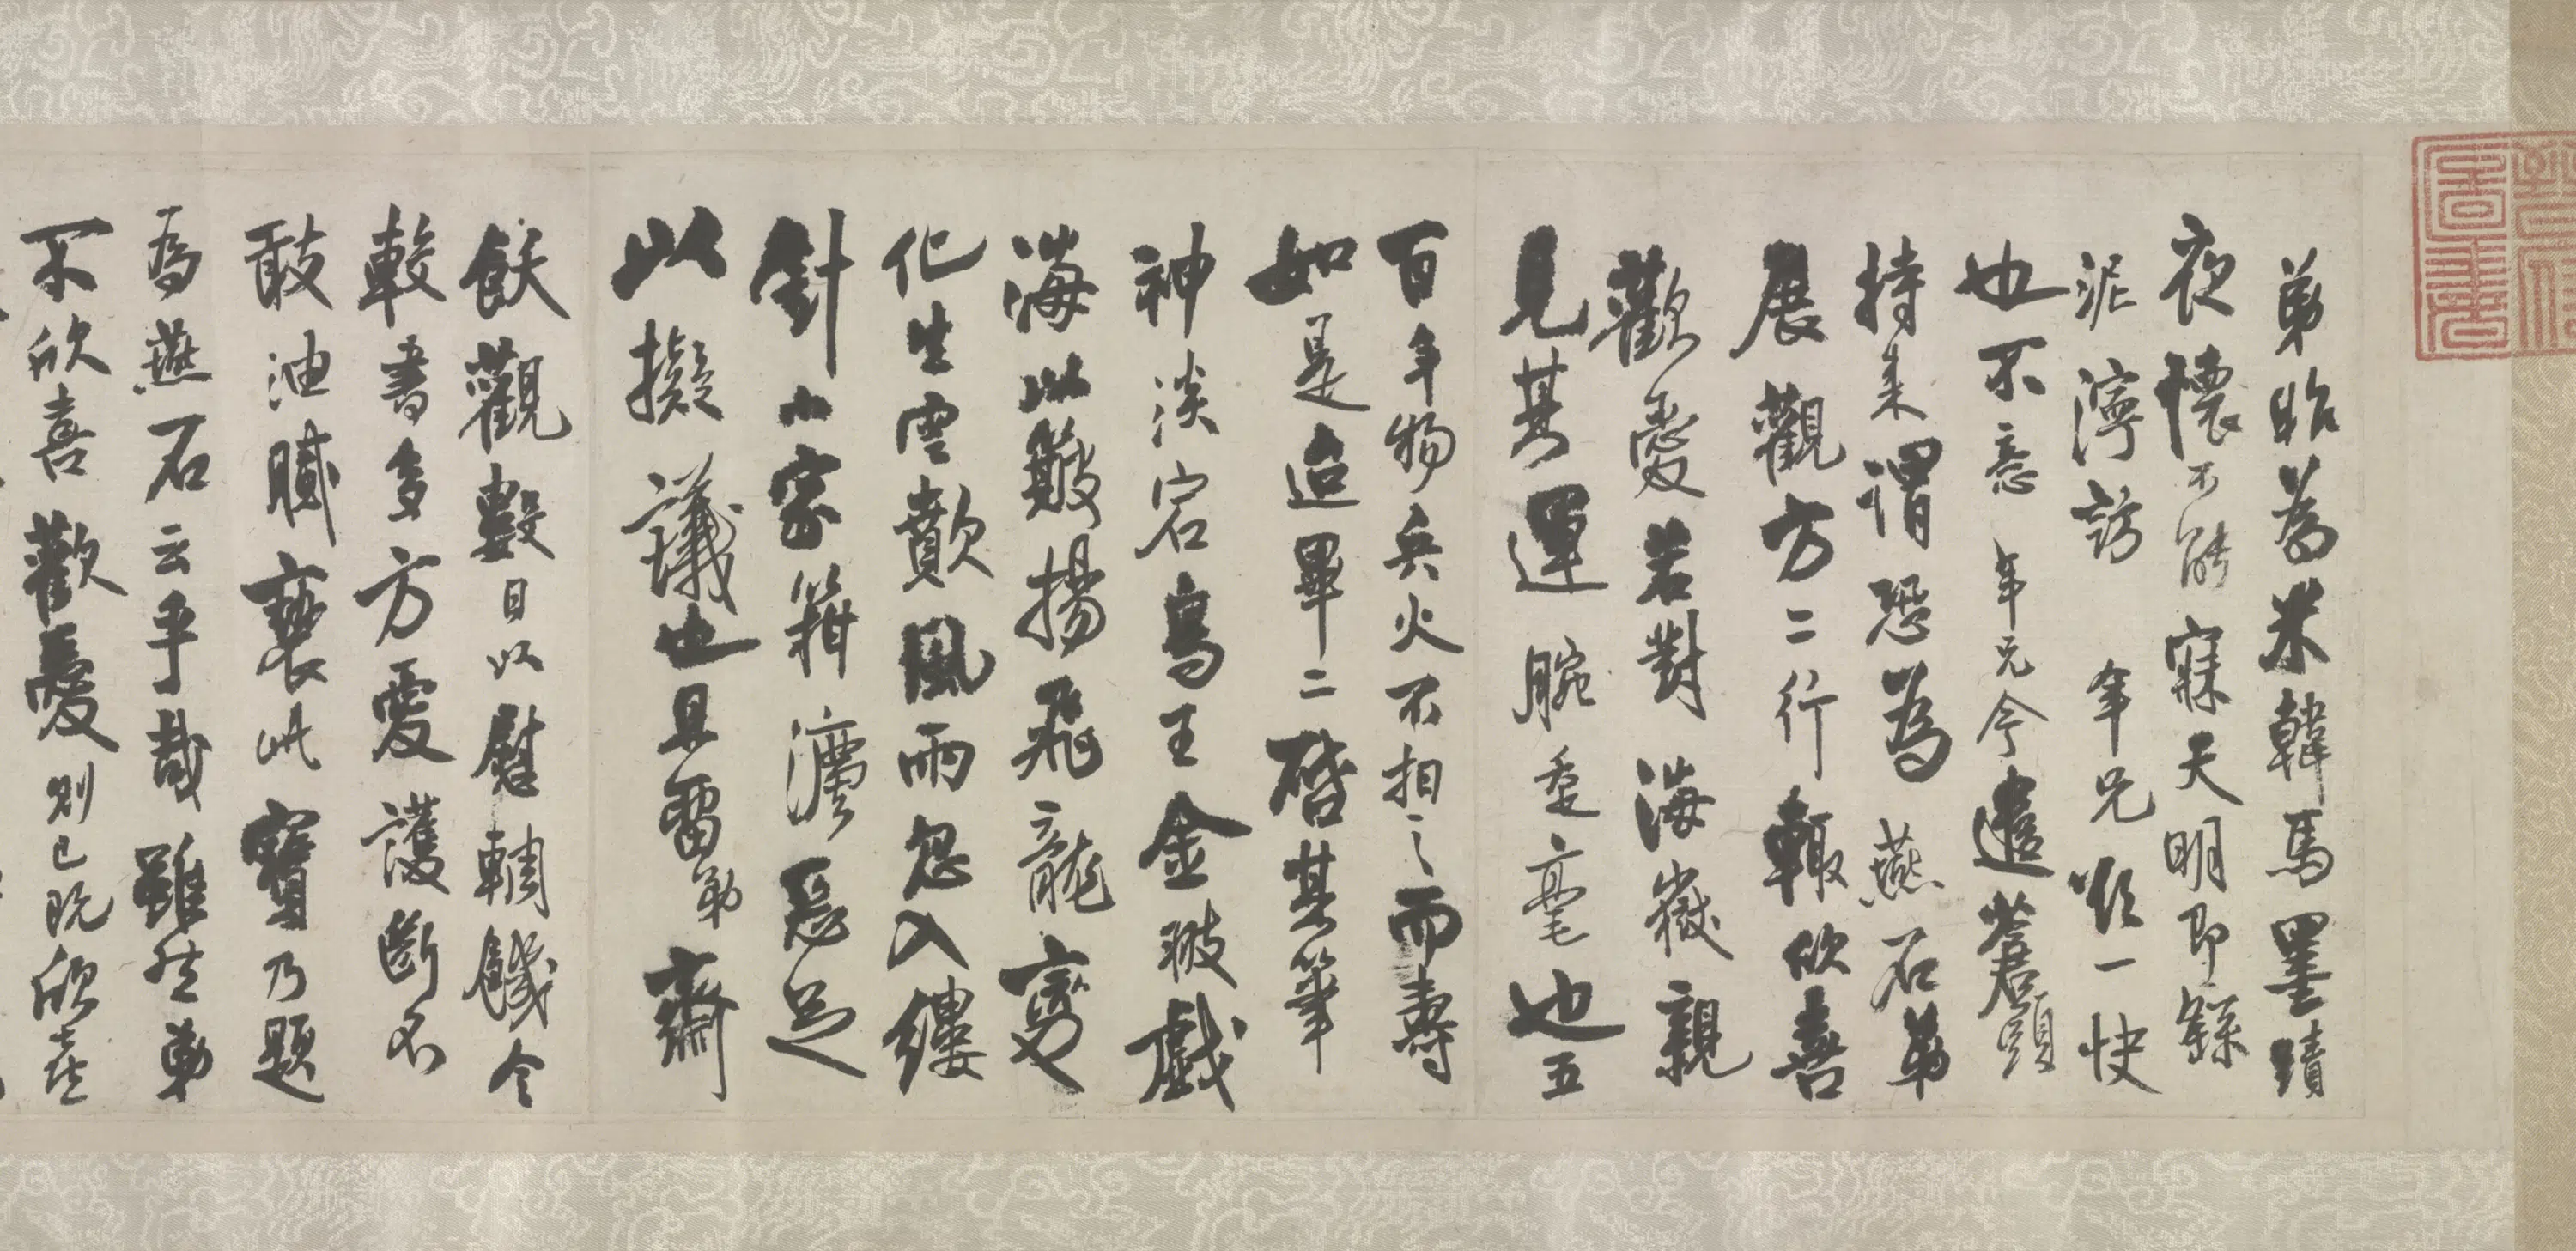 弟昨為米韓馬墨蹟
夜懷不能寐天明即繇
泥濘訪年兄於一快
也不意年兄今遣蒼頭
持来謂恐為燕石弟
展觀方二行輒欣喜
歡愛若對海嶽親
見其運腕垂毫也五
百年物兵火不相之而壽
如是迨畢二啓其筆
神淡宕鳥王金翅戲
海以簸揚飛龍變
化生雲歕風雨忽入縷
針小家籍濃惡足
以擬議也且留弟齋
飫觀數日以慰輖饑今
較書多方愛護斷不
敢油膩褻此寶乃題
為燕石云乎哉雖然弟
不欣喜歡愛則已既欣喜